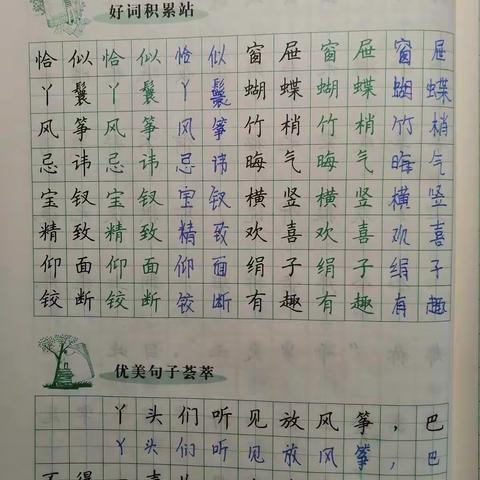 好词积累站
恰似恰似恰似窗屉窗屉窗屉
丫鬟丫鬟丫鬟蝴蝶蝴蝶蝴蝶
风筝风筝风筝竹梢竹梢竹梢
忌讳忌讳忌讳晦气晦气晦气
宝钗宝钗宝钗横竖横竖横竖
精致精致精致欢喜欢喜欢喜
仰面仰面仰面绢子绢子绢子
铰断铰断铰断有趣有趣有趣
优美句子荟萃
丫头们听见放风筝，巴
丫头们听见放风筝，巴
不得